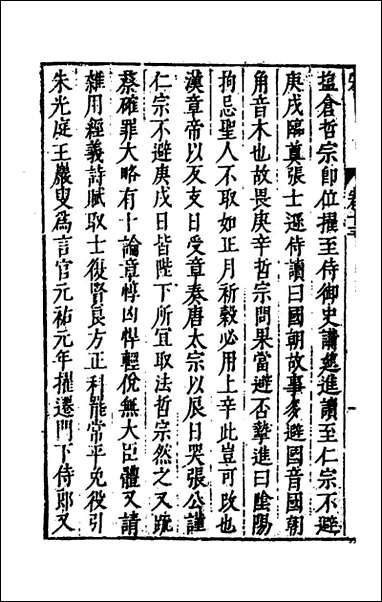 塩倉哲宗即位擢至侍御史講筵進讀至仁宗不避
庚戌臨奠張士遜侍讀曰國朝故事多避國音國朝
角音木也故畏庚辛哲宗問果當避否摯進曰陰陽
拘忌聖人不取如正月祈穀必用上辛此豈可改也
漢章帝以反支日受章奏唐太宗以辰日哭張公謹
仁宗不避庚戌日皆陛下所宜取法哲宗然之又疏
蔡確罪大略有十論章惇凶悍輕侻無大臣體又請
雜用經義詩賦取士復賢良方正科罷常平免役引
朱光庭王巖叟為言官元祐元年擢遷門下侍郎又